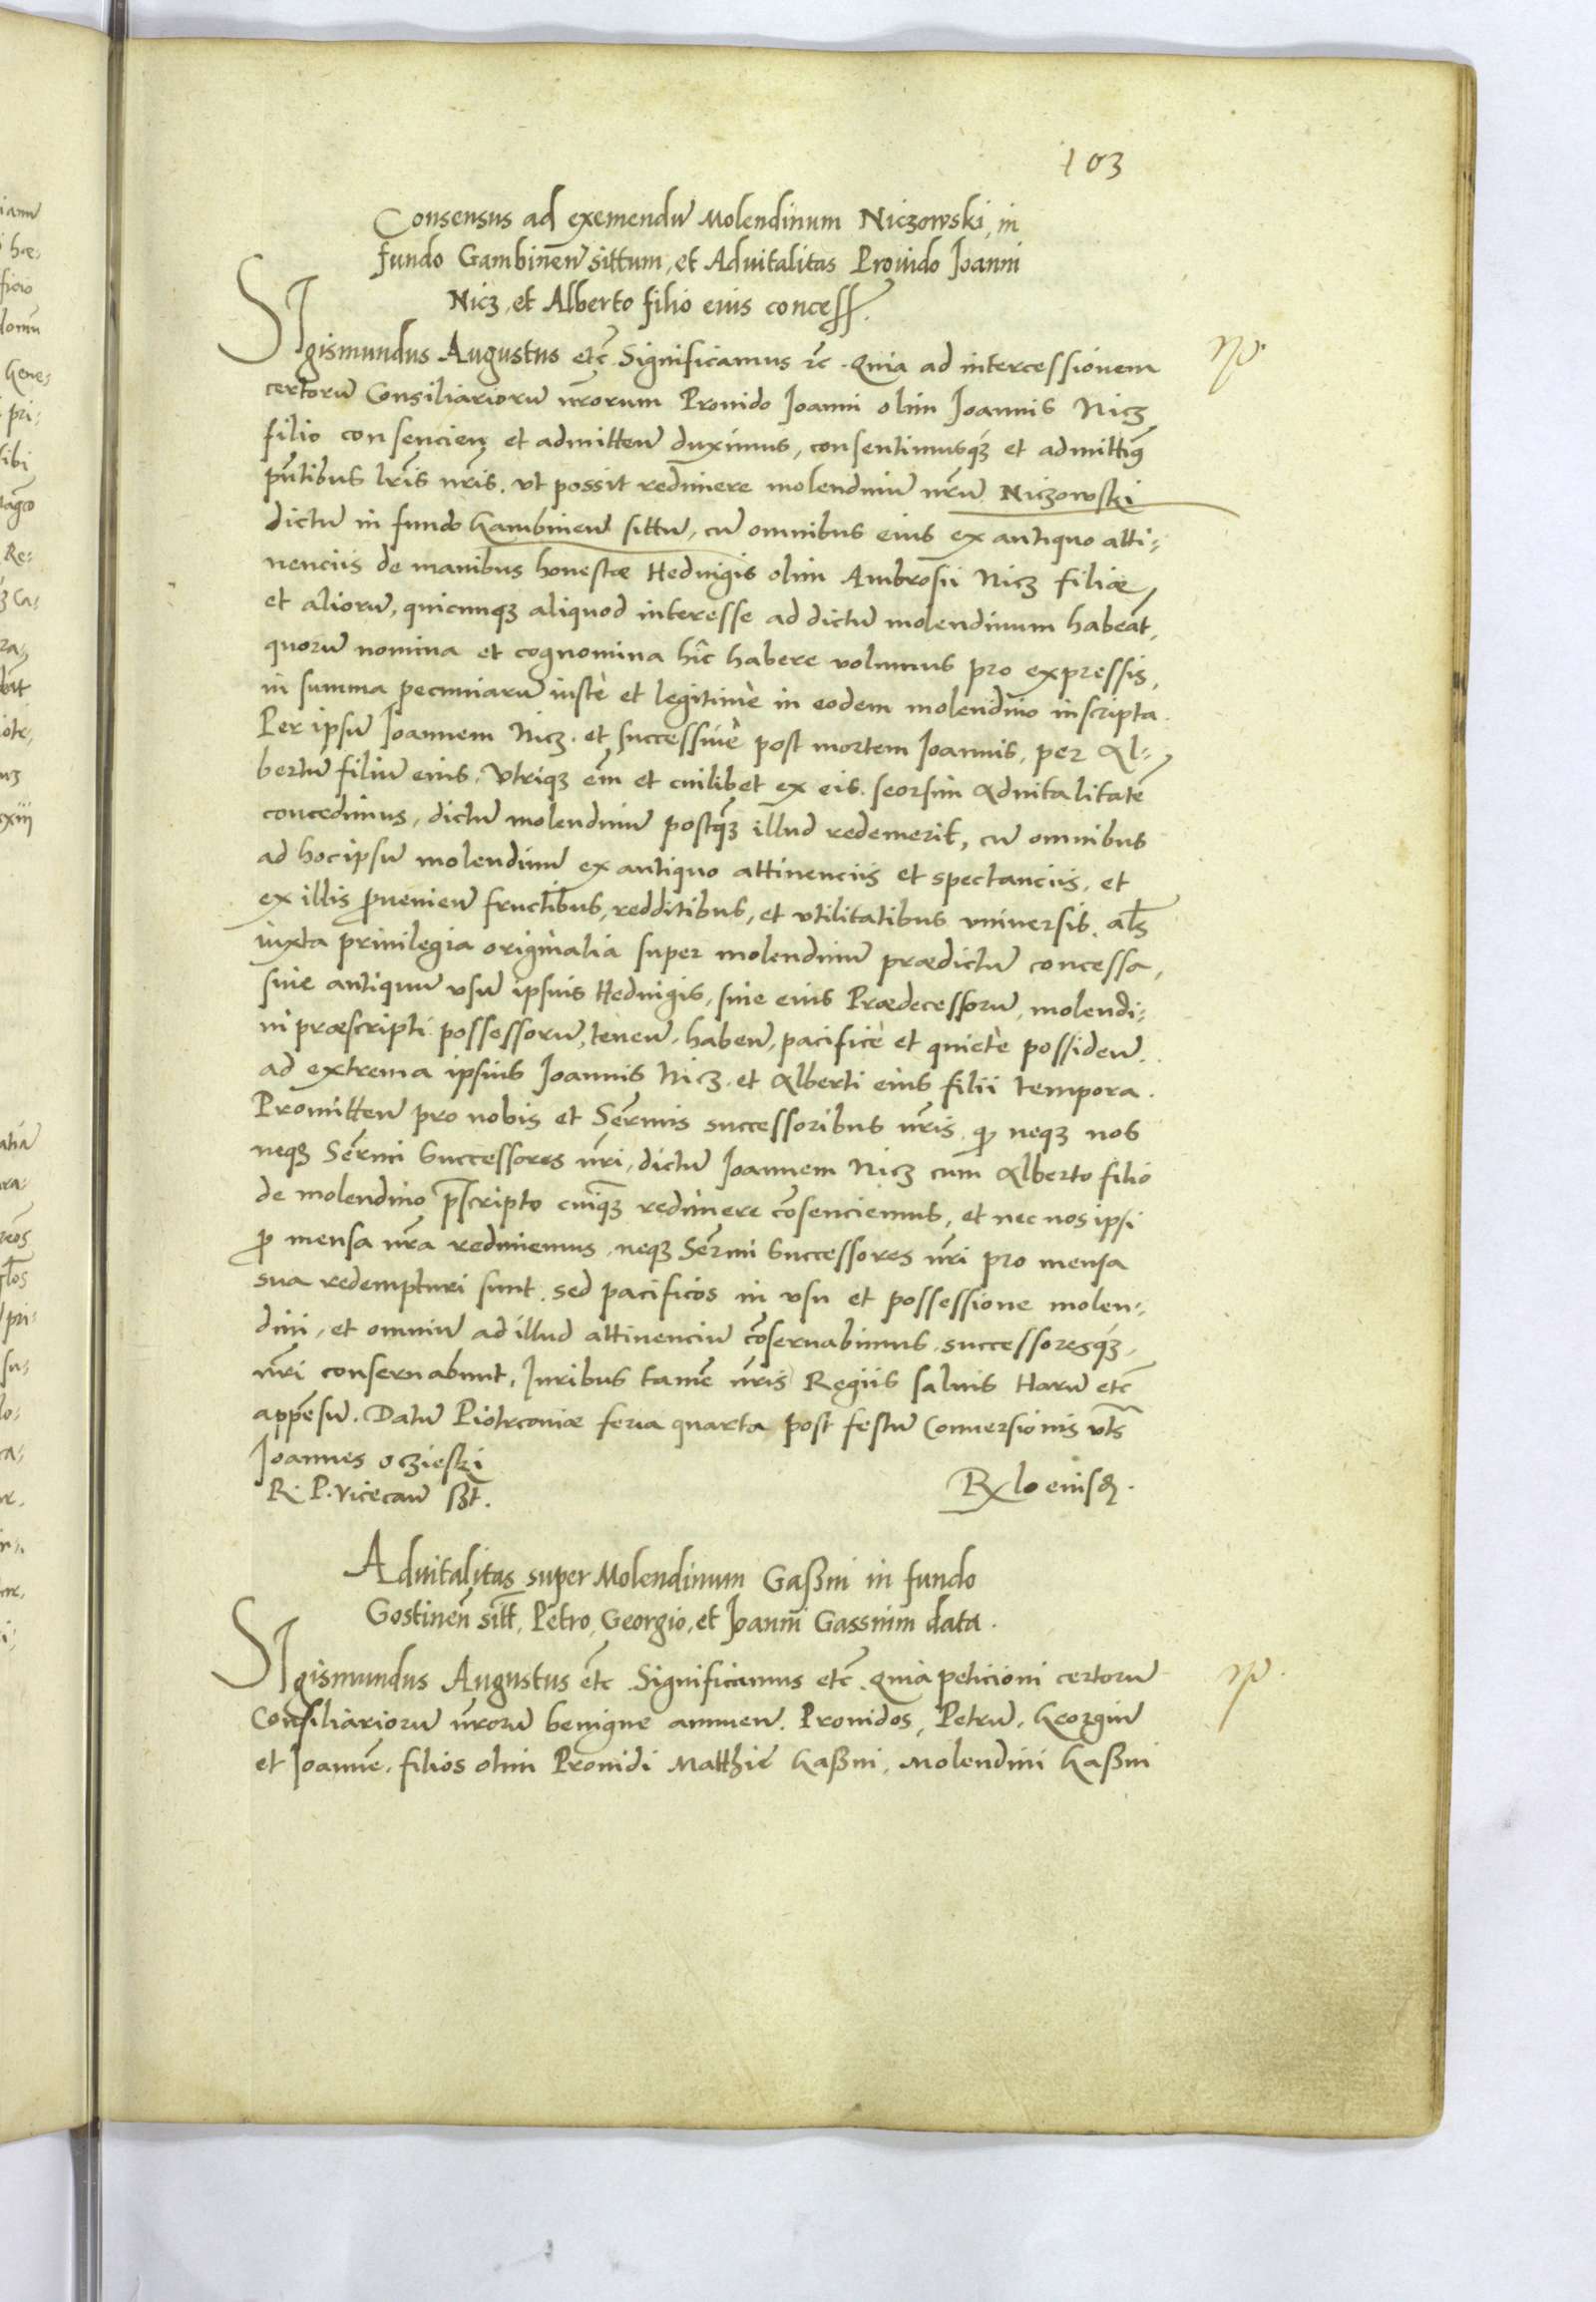 103
Consensus ad exemendū Molendinum Niczowski, in
fundo Gambineñ sittum, et Aduitalitas Prouido Joanni
Nicz, et Alberto filio eius concess.
SIgismundus Augustus etc̄ Significamus ꝛc̄. Quia ad intercessionem
certorū Consiliariorū nr̄orum Prouido Joanni olim Joannis Nicz
filio consencieñ et admitteñ duximus, consentimusqꝫ et admittimꝯ
pn̄tibus lr̄is nr̄is. vt possit redimere molendinū nr̄ū Niczowski
dictū in fundo Gambineñ sittū, cū omnibus eius ex antiquo atti:
nenciis de manibus honestæ Heduigis olim Ambrosii Nicz filiæ,
et aliorū, quicunqꝫ aliquod interesse ad dictū molendinum habeāt,
quorū nomina et cognomina hîc habere volumus pro expressis,
in summa pecuniarū iustè et legitimè in eodem molendino inscripta.
Per ipsū Joannem Nicz. et successiuè post mortem Joannis, per Al:
bertū filiū eius. Vtriqꝫ em̄ et cuilibet ex eis. seorsim aduitalitatē
concedimus, dictū molendinū postqꝫ illud redemerit, cū omnibus
ad hoc ipsū molendinū ex antiquo attinenciis et spectanciis, et
ex illis ꝓuenieñ fructibus, redditibus, et vtilitatibus vniuersis. al̄s
iuxta priuilegia originalia super molendinū prædictū concessa,
siue antiquū vsū ipsius Heduigis, siue eius Prædecessorū, molendi:
ni præscripti possessorū, teneñ, habeñ, pacificè et quietè possideñ.
ad extrema ipsius Joannis Nicz. et Alberti eius filii tempora.
Promitteñ pro nobis et Ser̄mis successoribus nr̄is. ꝙ neqꝫ nos
neqꝫ Ser̄mi Successores nr̄i, dictū Joannem Nicz cum Alberto filio
de molendino p̄scripto cuiqꝫ redimere cōsenciemus, et nec nos ipsi
ꝓ mensa nr̄a redimemus, neqꝫ Ser̄mi Successores nr̄i pro mensa
sua redempturi sunt. sed pacificos in vsu et possessione molen:
dini, et omniū ad illud attinenciū cōseruabimus, successoresqꝫ
nr̄i conseruabunt, Juribus tamē nr̄is Regiis saluis Harū etc̄
appēsū. Datū Piotrcouiæ feria quarta post festū Conuersionis vt s̄
Joannes Oczieski
R. P. Vicecañ ss̄t.
Rx̄lo eiusd̄.
Aduitalitas super Molendinum Gaßni in fundo
Gostineñ sitt̄, Petro, Georgio, et Joanni Gassnim data.
SIgismundus Augustus etc̄ Significamus etc̄. Quia peticioni certorū
Consiliariorū nr̄orū benigne annueñ. Prouidos, Petrū, Georgiū
et Joannē, filios olim Prouidi Matthiē Gaßni, Molendini Gaßni